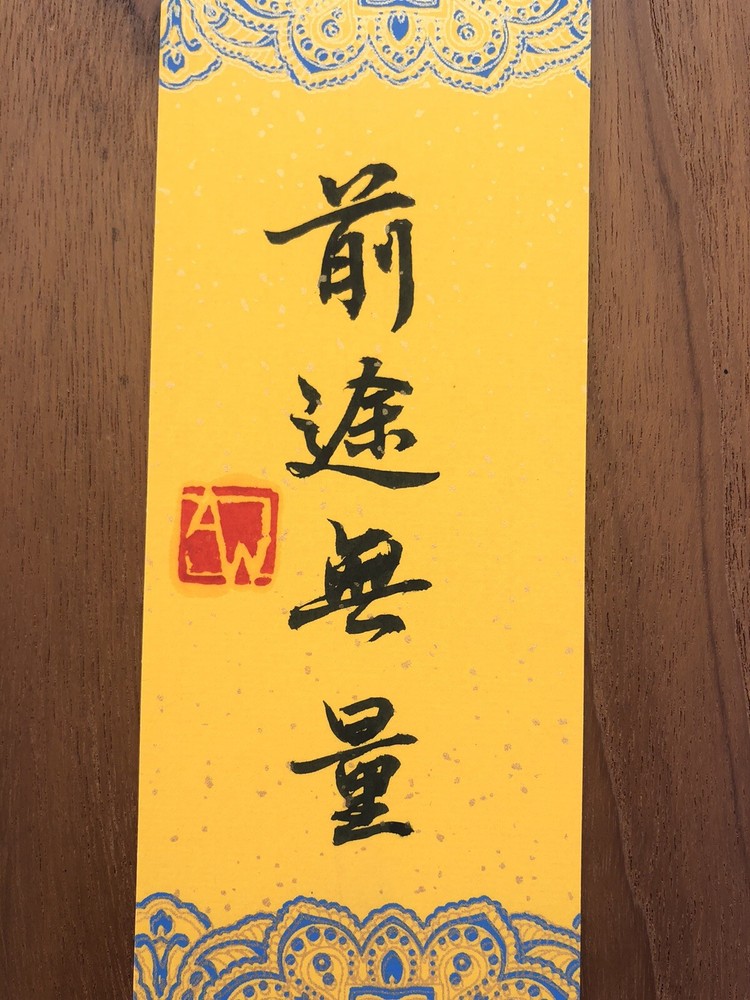 前途無量
AW